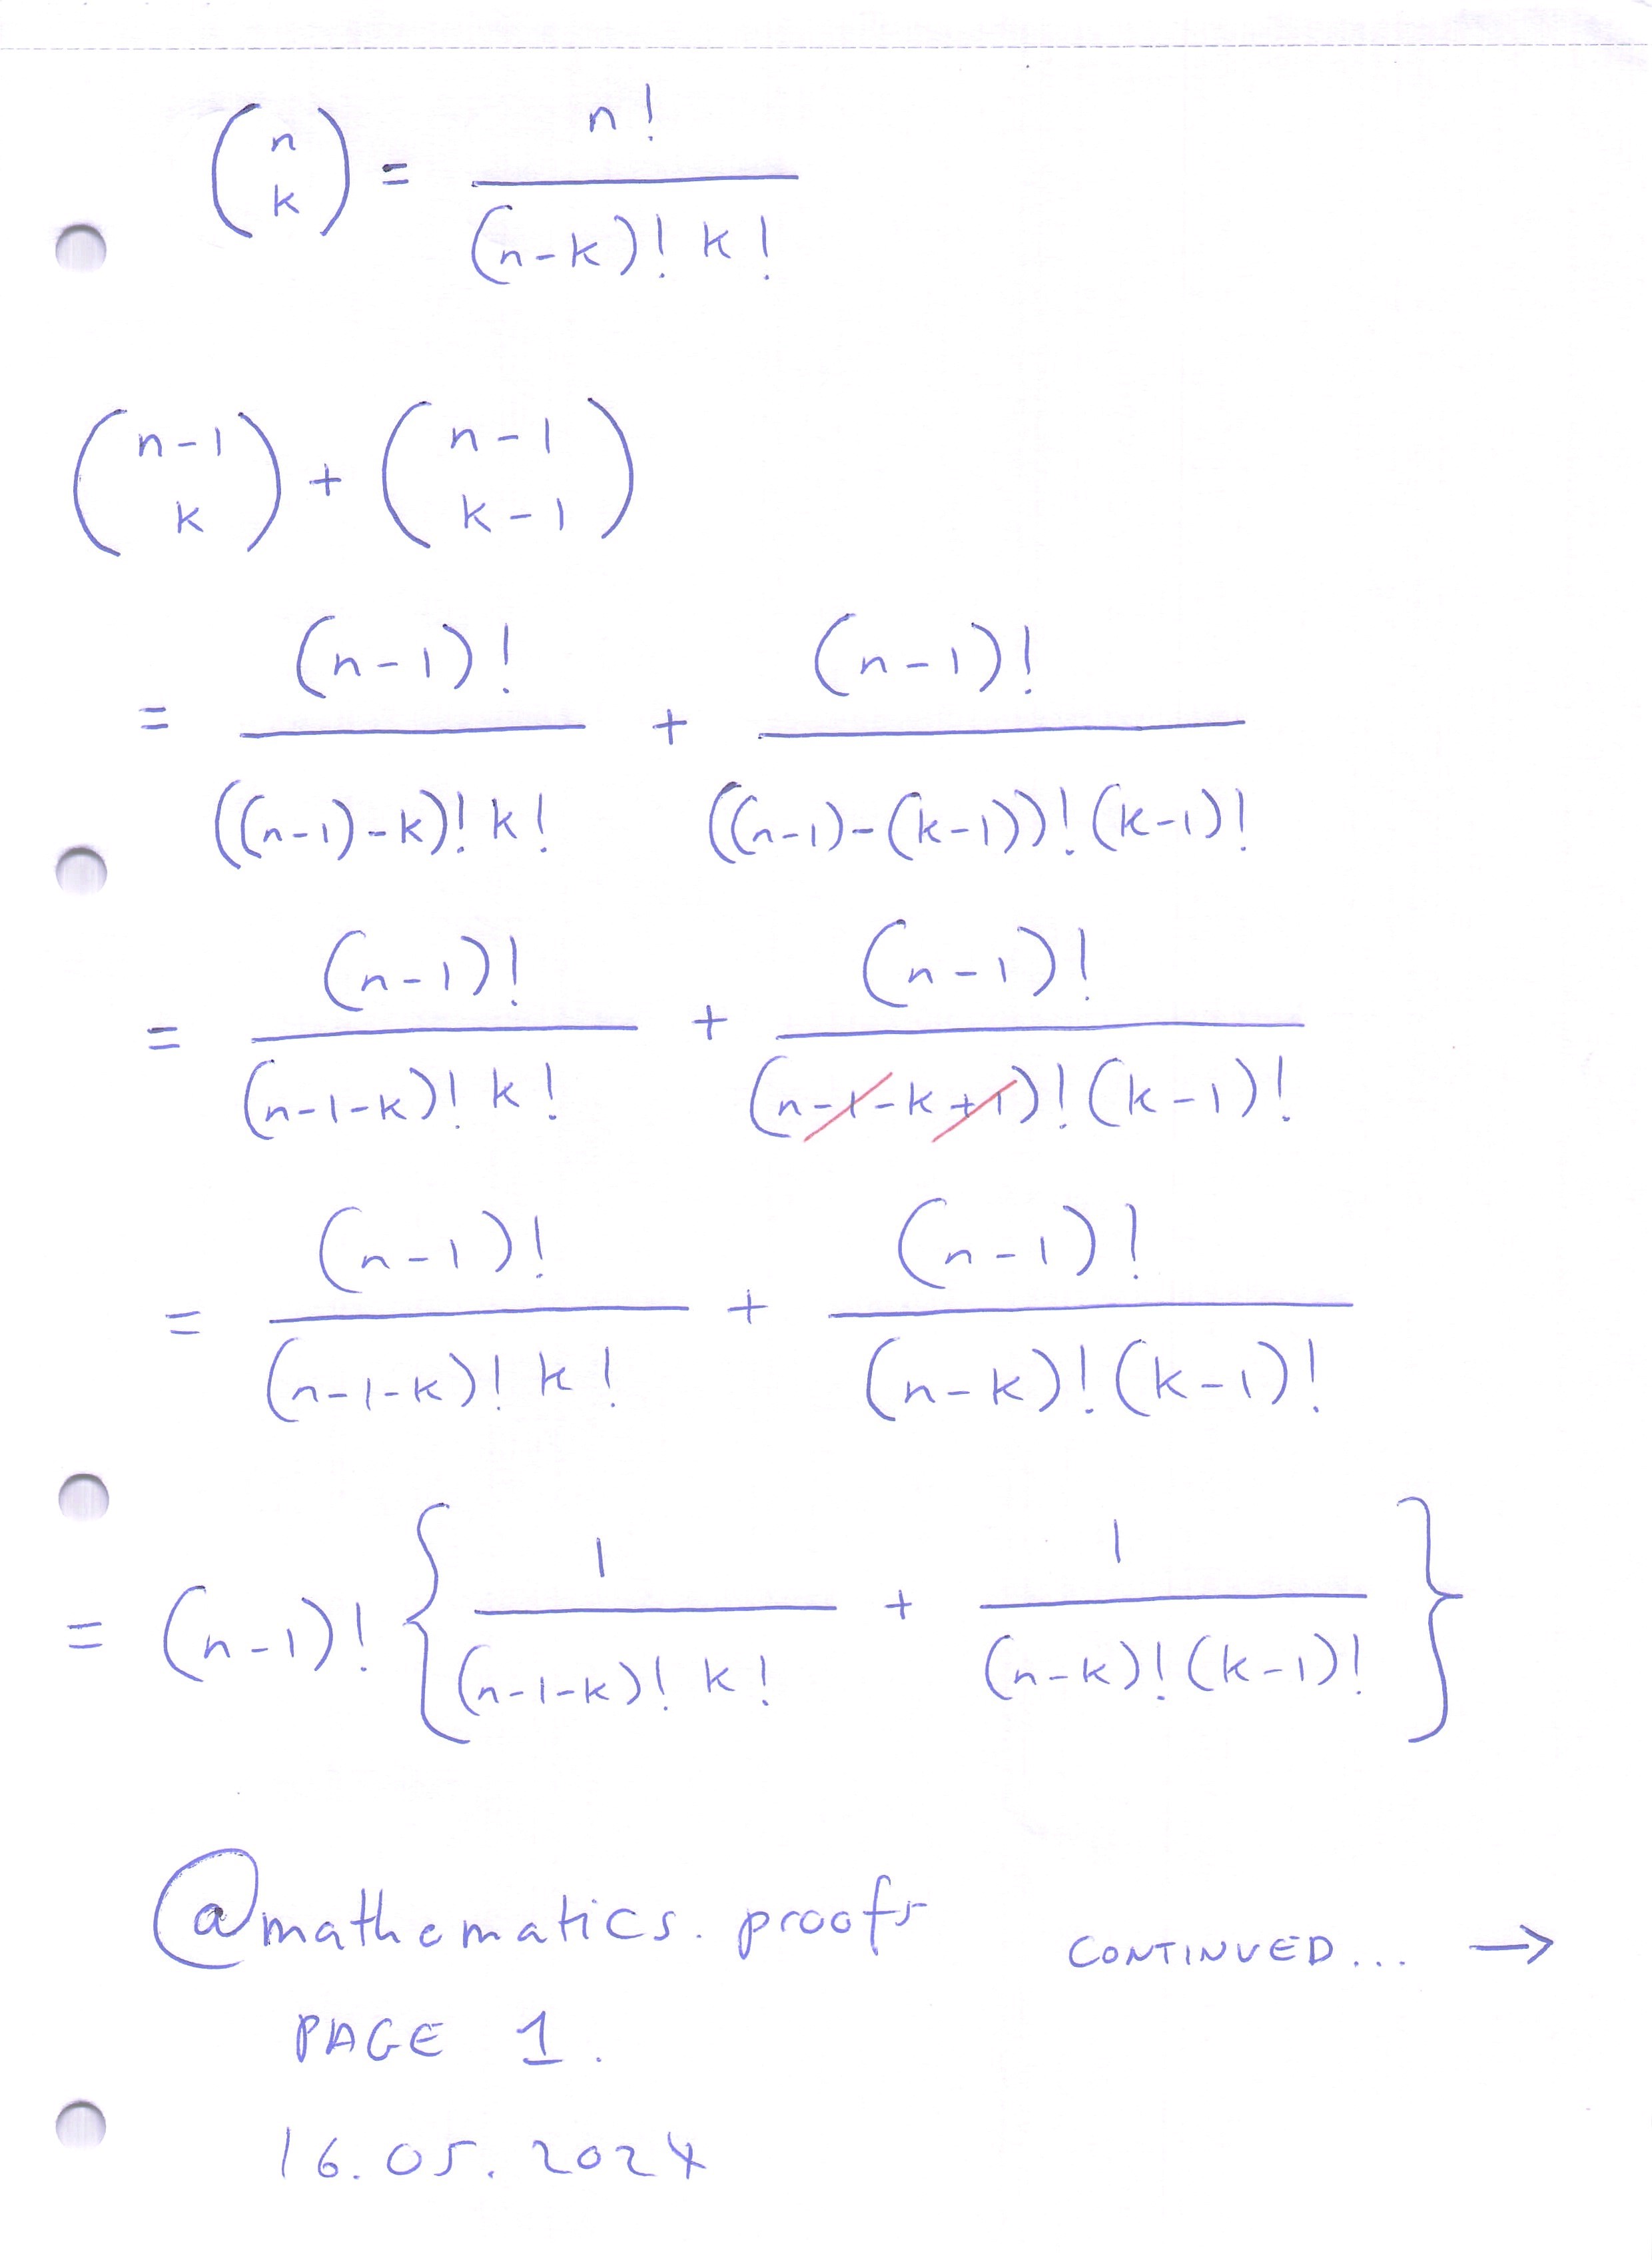 (n k) = n! / (n-k)! k!
(n-1 k) + (n-1 k-1)
= (n-1)! / ((n-1)-k)! k! + (n-1)! / ((n-1)-(k-1))! (k-1)!
= (n-1)! / (n-1-k)! k! + (n-1)! / (n-1-k+1)! (k-1)!
= (n-1)! / (n-1-k)! k! + (n-1)! / (n-k)! (k-1)!
= (n-1)! { 1 / (n-1-k)! k! + 1 / (n-k)! (k-1)! }
@mathematics.proofs
CONTINUED... →
PAGE 1.
16.05.2024